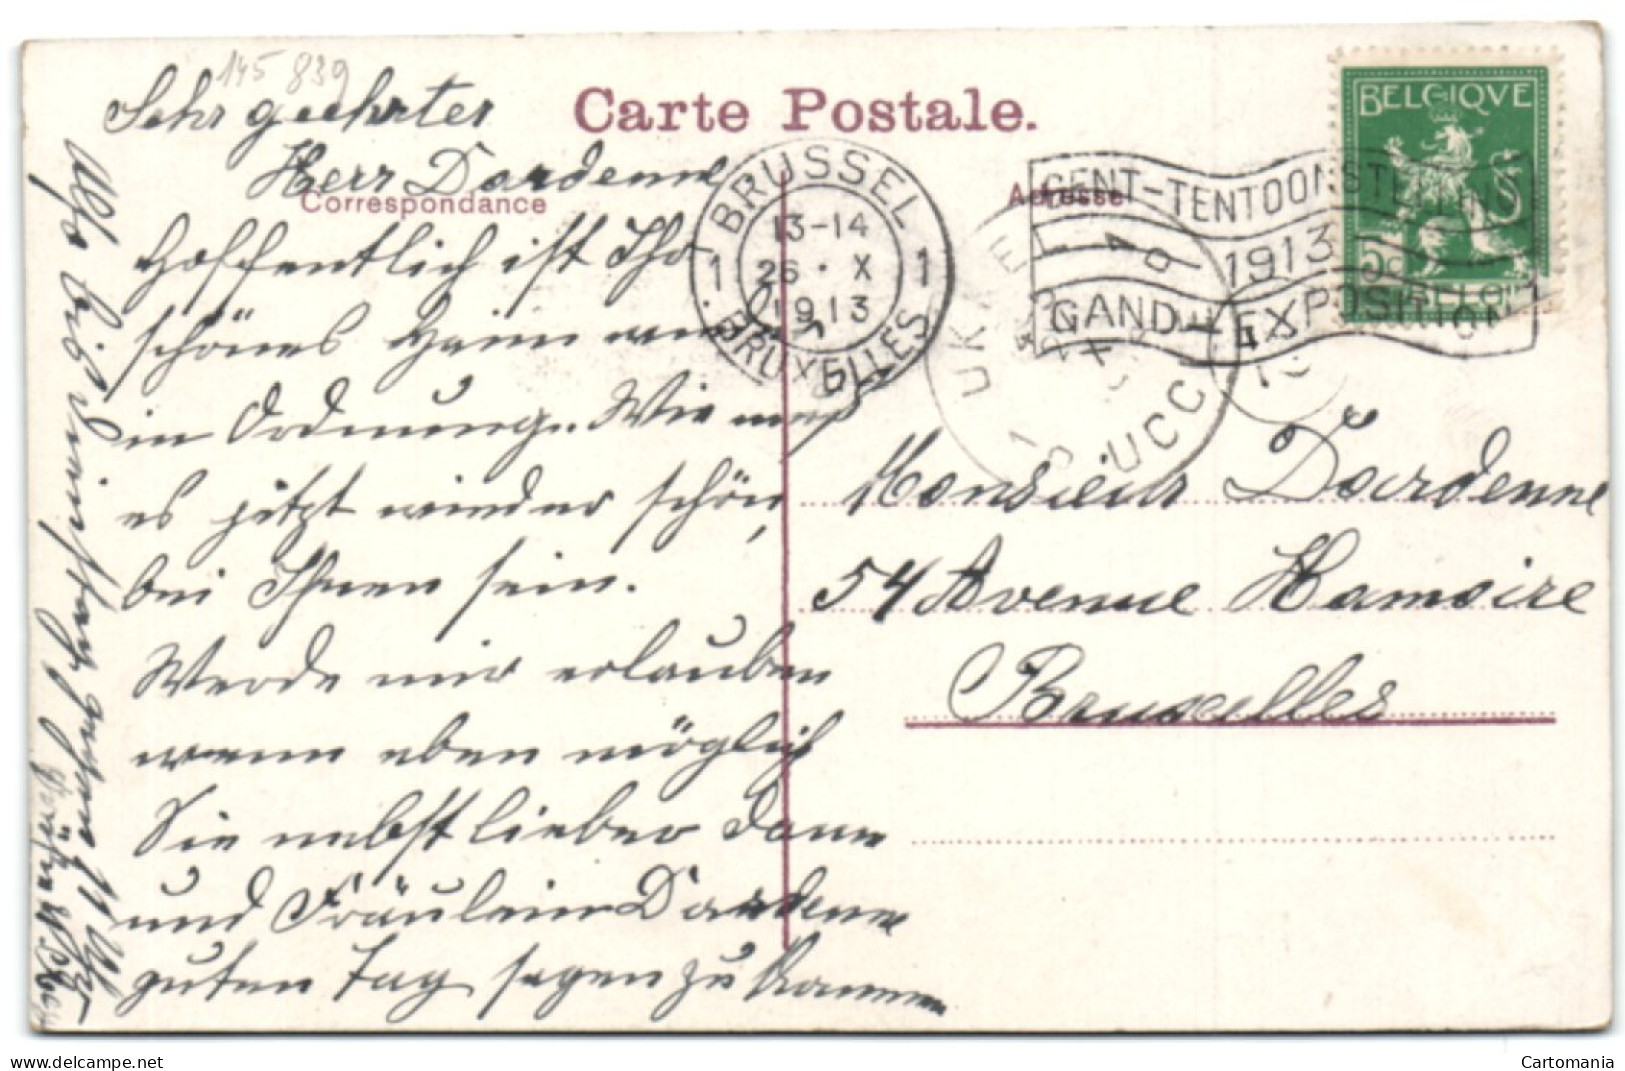 145 839
Carte Postale.
Correspondance
Adresse
BELGIQUE
BRUSSEL
13-14
1 26 · X 1
1913
BRUXELLES
GENT-TENTOONSTELLING
1913
GAND-EXPOSITION
UKKEL
UCCLE
Sehr geehrter
Herr Dardenne
Hoffentlich ist Ihr
schönes Heim
in Ordnung. Wie mag
es jetzt wieder schön,
bei Ihnen sein.
Werde mir erlauben
wenn eben möglich
Sie nebst lieber Dame
und Fräulein Dardenne
guten Tag sagen zu kommen
Also bis Dienstag
Monsieur Dardenne
54 Avenue Hamoire
Bruxelles
delcampe.net
Cartomania